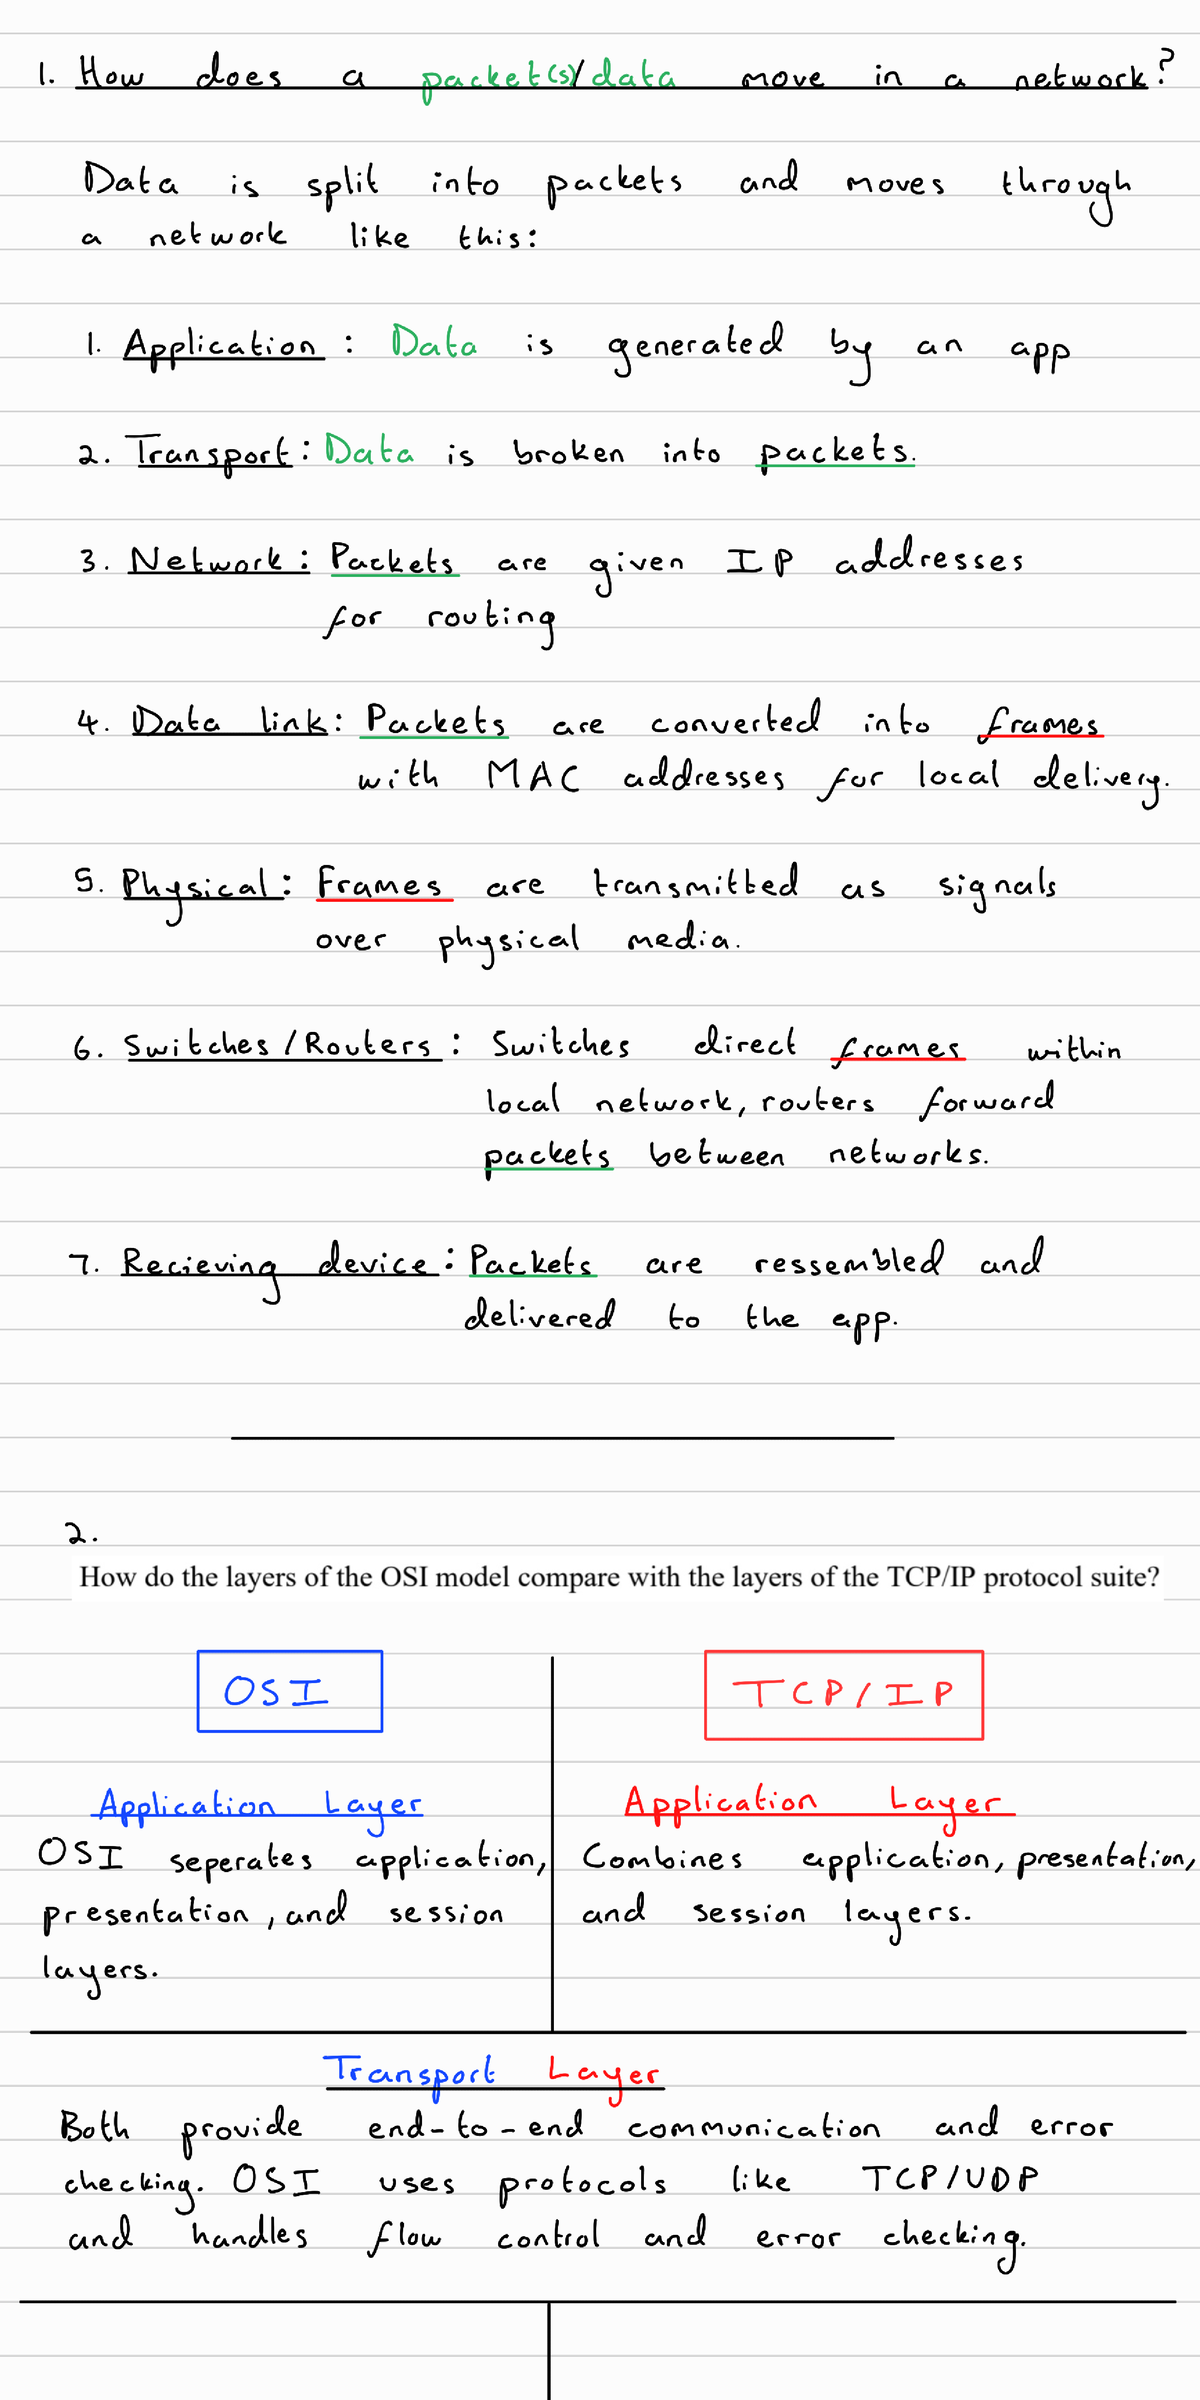 1. How does a packet(s)/data move in a network?
Data is split into packets and moves through
a network like this:
1. Application : Data is generated by an app
2. Transport : Data is broken into packets.
3. Network : Packets are given IP addresses
for routing
4. Data link : Packets are converted into frames
with MAC addresses for local delivery.
5. Physical : Frames are transmitted as signals
over physical media.
6. Switches / Routers : Switches direct frames within
local network, routers forward
packets between networks.
7. Recieving device : Packets are ressembled and
delivered to the app.
2.
How do the layers of the OSI model compare with the layers of the TCP/IP protocol suite?
OSI
Application Layer
OSI seperates application,
presentation, and session
layers.
TCP/IP
Application Layer
Combines application, presentation,
and session layers.
Transport Layer
Both provide end-to-end communication and error
checking. OSI uses protocols like TCP/UDP
and handles flow control and error checking.